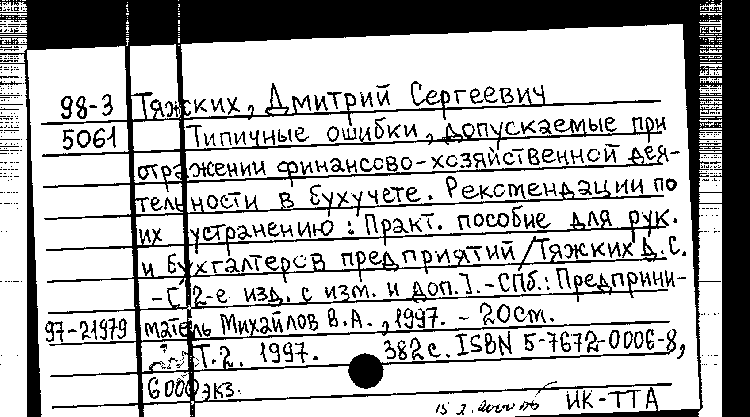 98-3 Тяжских, Дмитрий Сергеевич
5061 Типичные ошибки, допускаемые при
отражении финансово-хозяйственной дея-
тельности в бухучете. Рекомендации по
их устранению: Практ. пособие для рук.
и бухгалтеров предприятий/Тяжских Д.С.
-[2-е изд. с изм. и доп.].-СПб.: Предприни-
97-21979 матель Михайлов В.А., 1997. - 20см.
Т.2. 1997. 382с. ISBN 5-7672-0006-8,
6000экз.
НК-ТТА